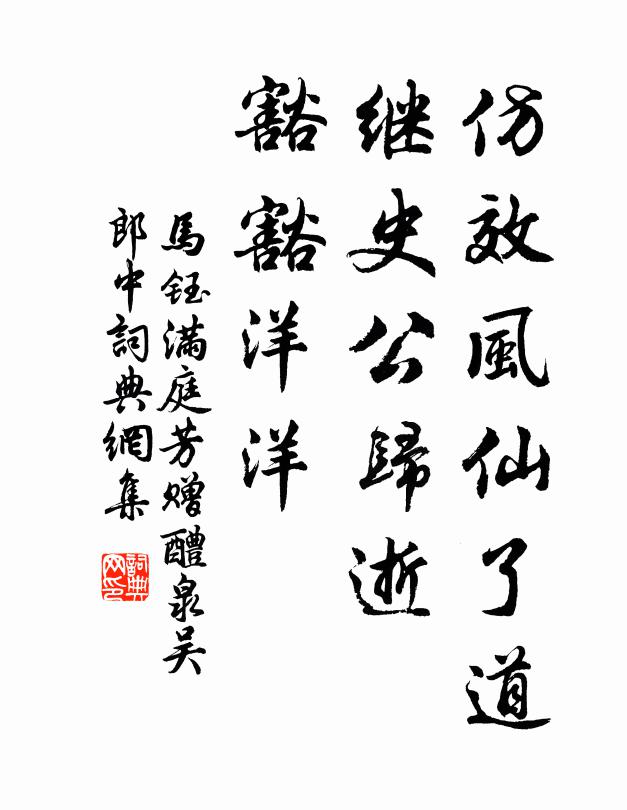 仿效風仙了道
继史公歸逝
豁豁洋洋
馬鈺满庭芳赠醴泉吴
郎中詞典網集
詞典网印